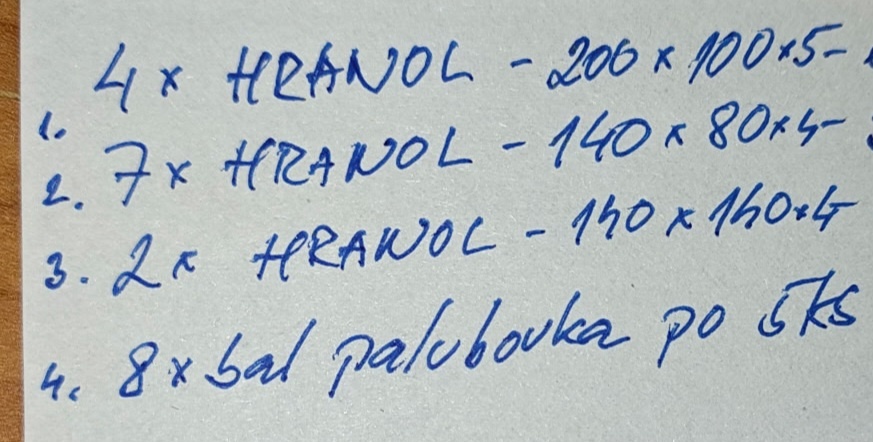 1. 4x HRANOL - 200 x 100x5-
2. 7x HRANOL - 140 x 80x4-
3. 2x HRANOL - 140 x 140x4-
4. 8x bal palubovka po 5ks